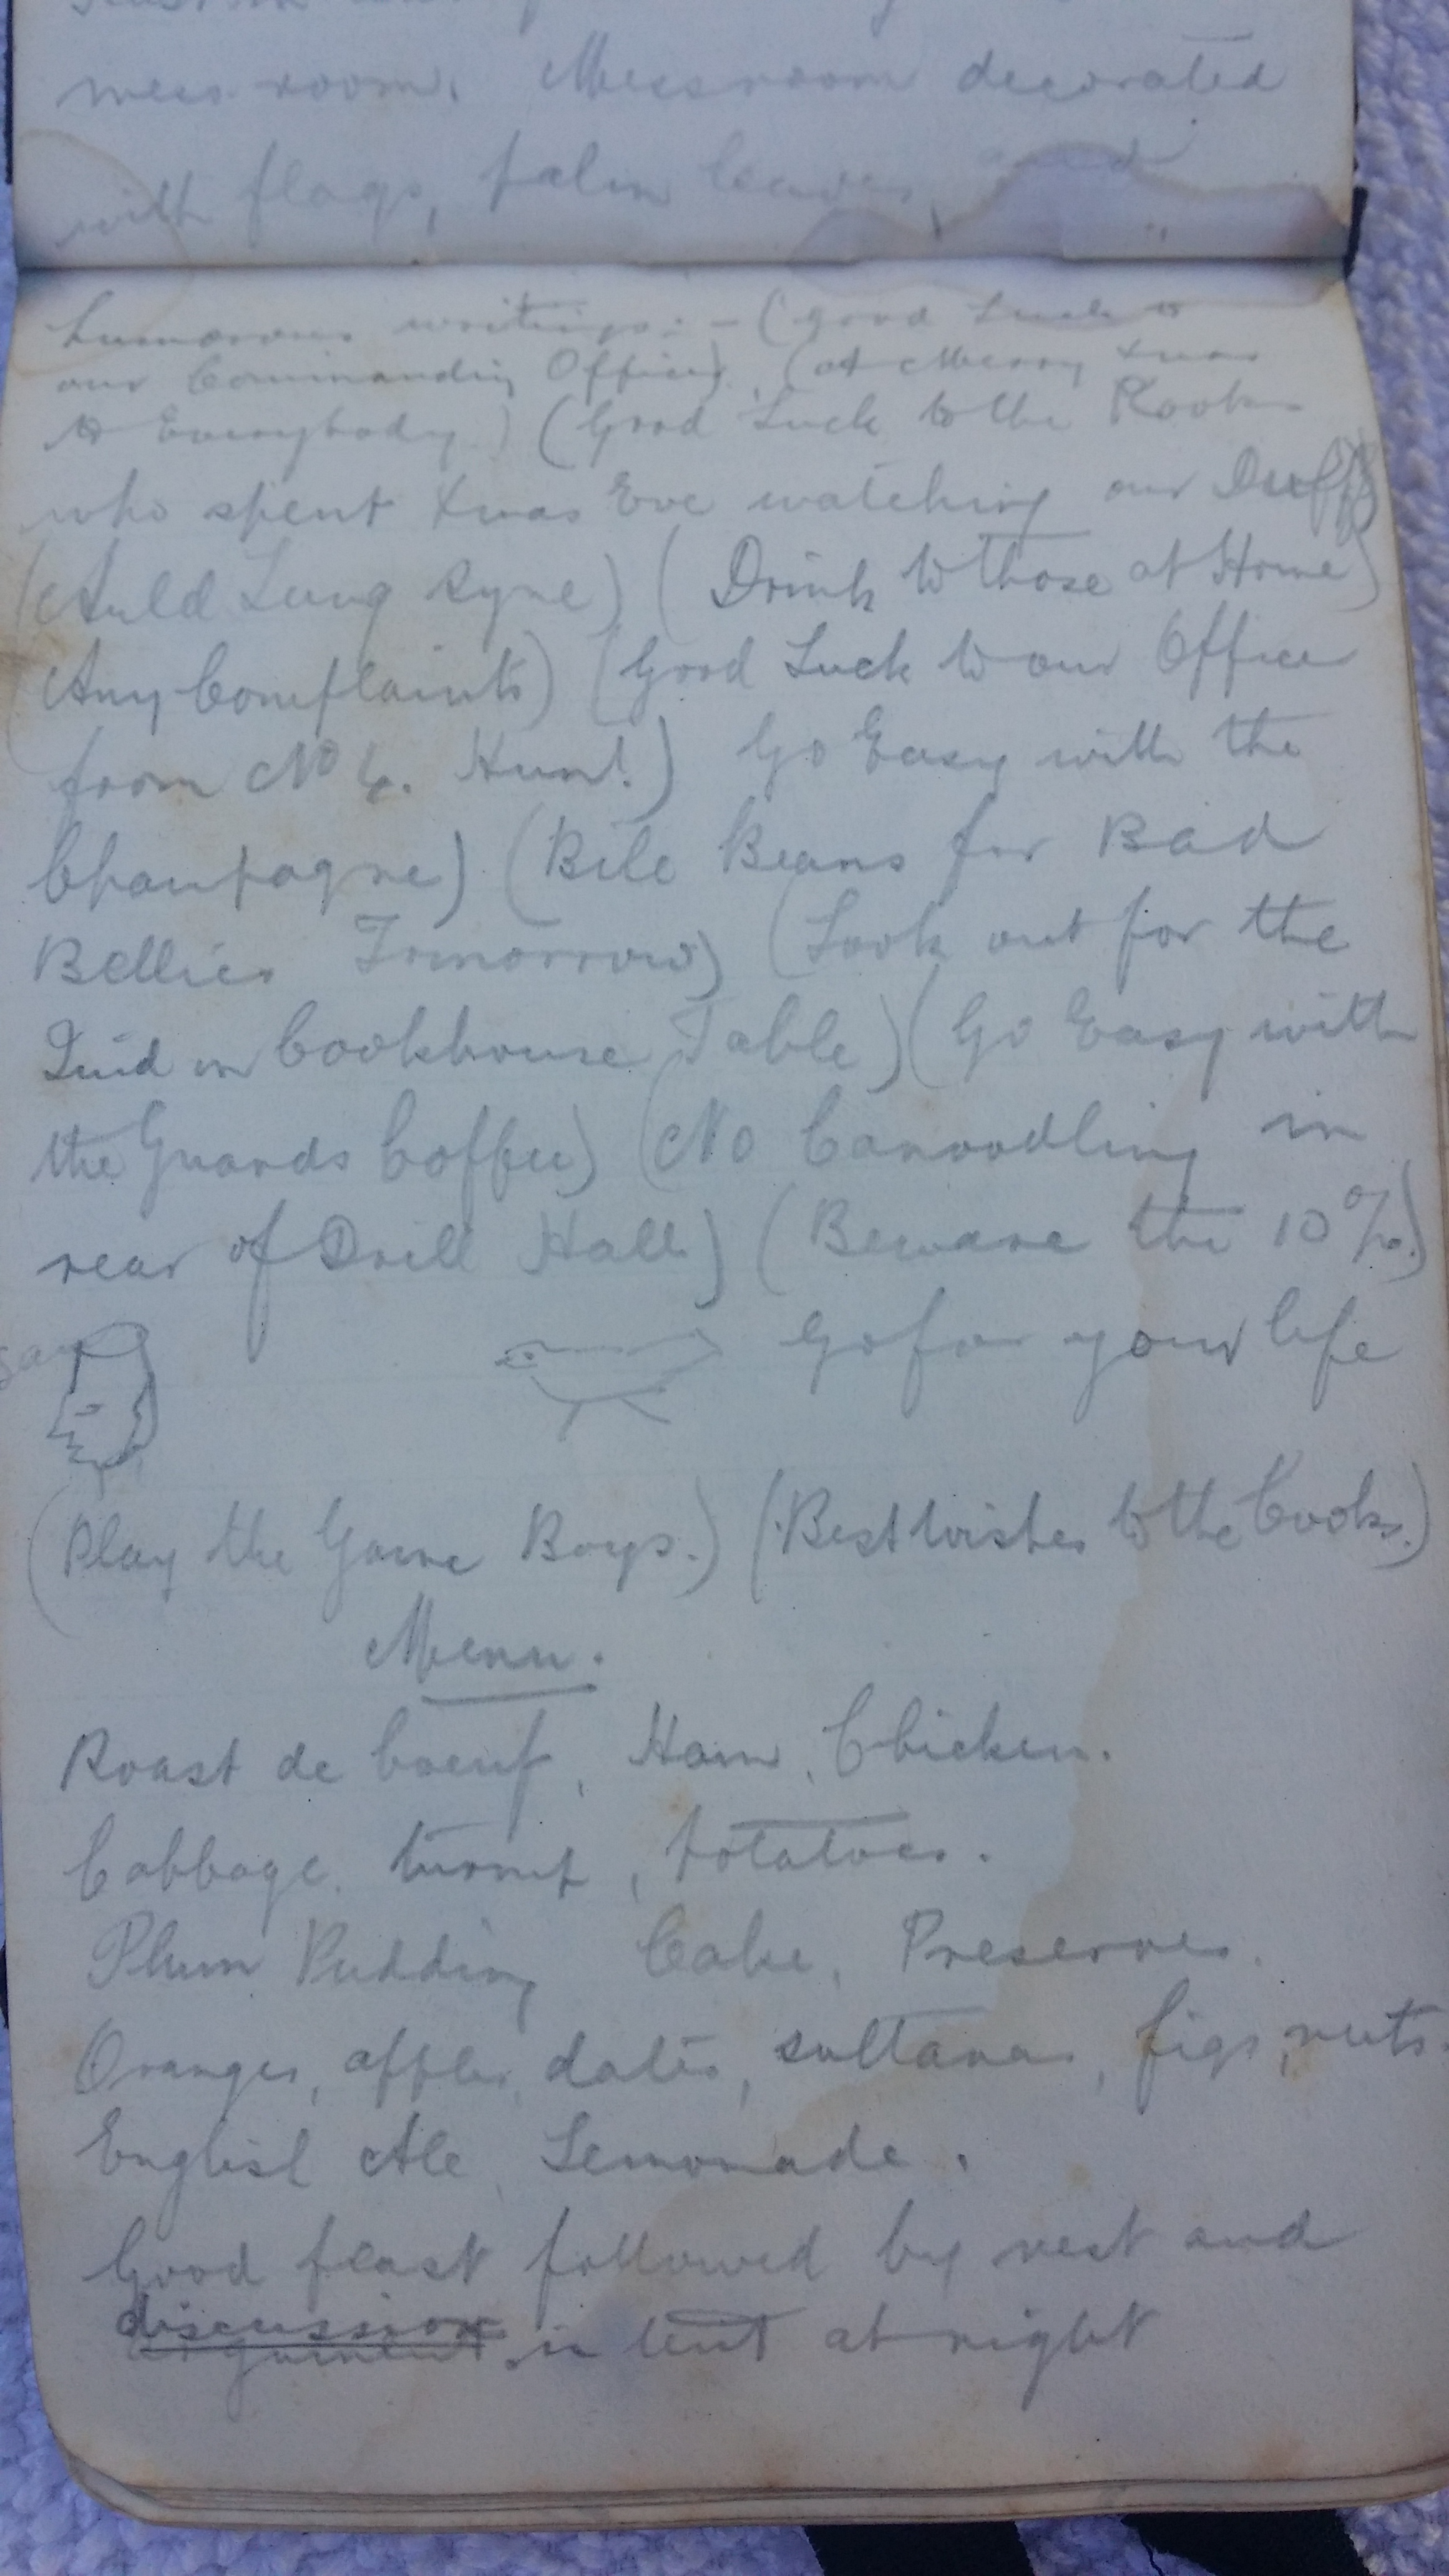 mess room. Messroom decorated
with flags, palm leaves, and
humorous writings:- (Good Luck to
our Commanding Officer) (A Merry Xmas
to Everybody) (Good Luck to the Rooks
who spent Xmas Eve watching our Duff)
(Auld Lang Syne) (Drink to those at Home)
(Any Complaints) (Good Luck to our Office
from No 6. Hunt.) Go Easy with the
Champagne) (Bile Beans for Bad
Bellies Tomorrow) (Look out for the
Quid on Cookhouse Table) (Go Easy with
the Guards Coffee) (No Canoodling in
rear of Drill Hall) (Beware the 10%)
Go for your life
(Play the Game Boys.) (Best wishes to the Cooks.)
Menu.
Roast de boeuf, Ham, Chicken.
Cabbage, turnip, potatoes.
Plum Pudding Cake, Preserves.
Oranges, apples, dates, sultanas, figs, nuts.
English Ale, Lemonade.
Good feast followed by rest and
discussion
argument in tent at night